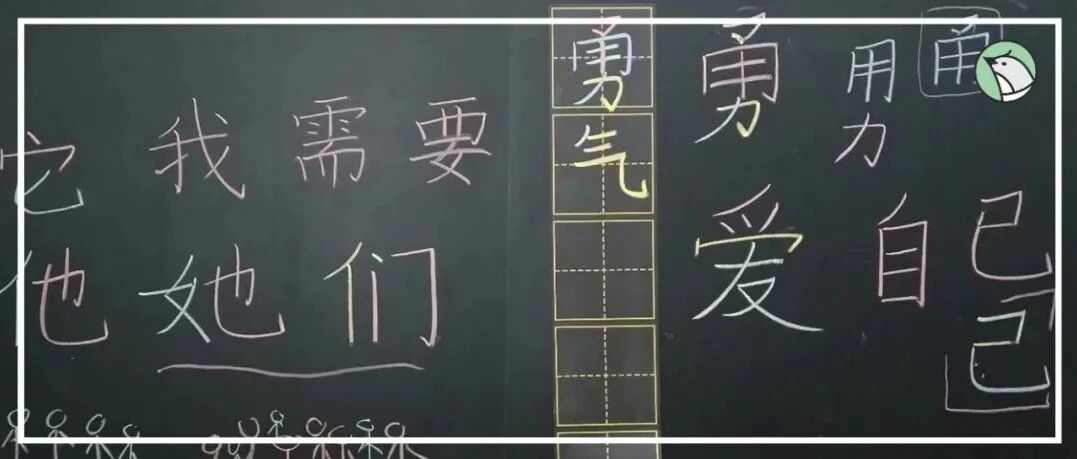 它 我需要
他 她们
勇气
勇 用力 甬
爱 自已
己